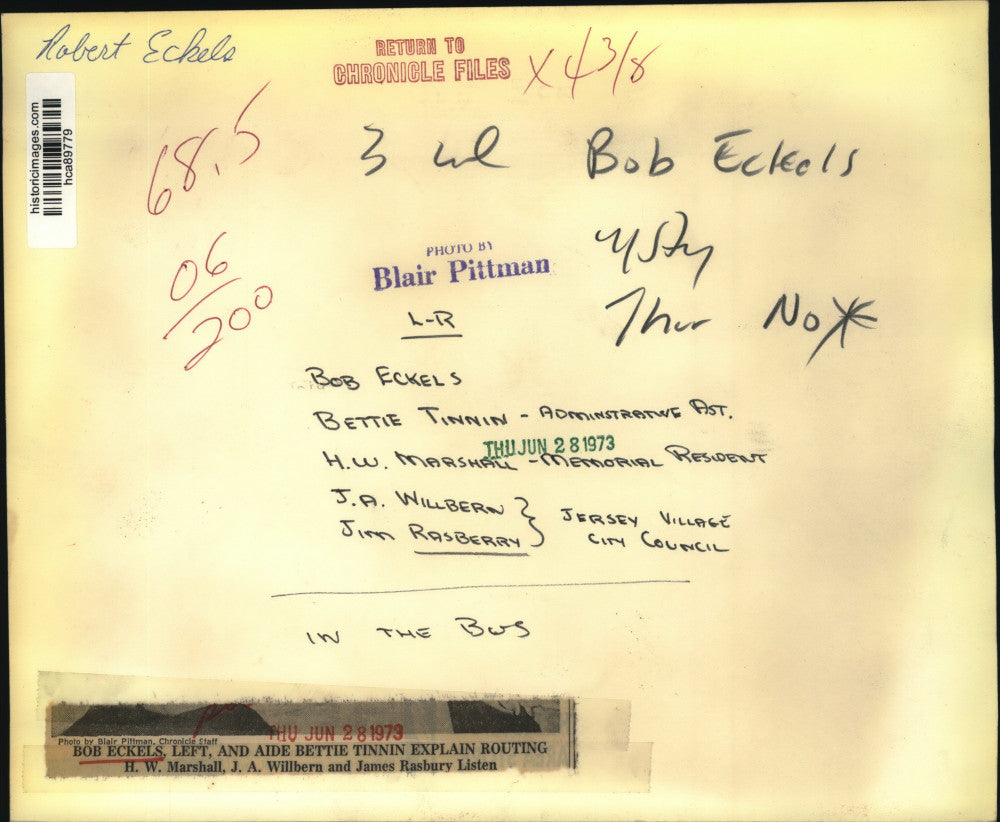 Robert Eckels
RETURN TO
CHRONICLE FILES
X 43/8
historicimages.com
hca89779
68.5
3 col Bob Eckels
06/200
PHOTO BY
Blair Pittman
Thur No
L-R
BOB ECKELS
BETTIE TINNIN - ADMINSTRATIVE AST.
THU JUN 28 1973
H.W. MARSHALL - MEMORIAL RESIDENT
J.A. WILLBERN } JERSEY VILLAGE
JIM RASBERRY } CITY COUNCIL
IN THE BUS
THU JUN 28 1973
Photo by Blair Pittman, Chronicle Staff
BOB ECKELS, LEFT, AND AIDE BETTIE TINNIN EXPLAIN ROUTING
H. W. Marshall, J. A. Willbern and James Rasbury Listen